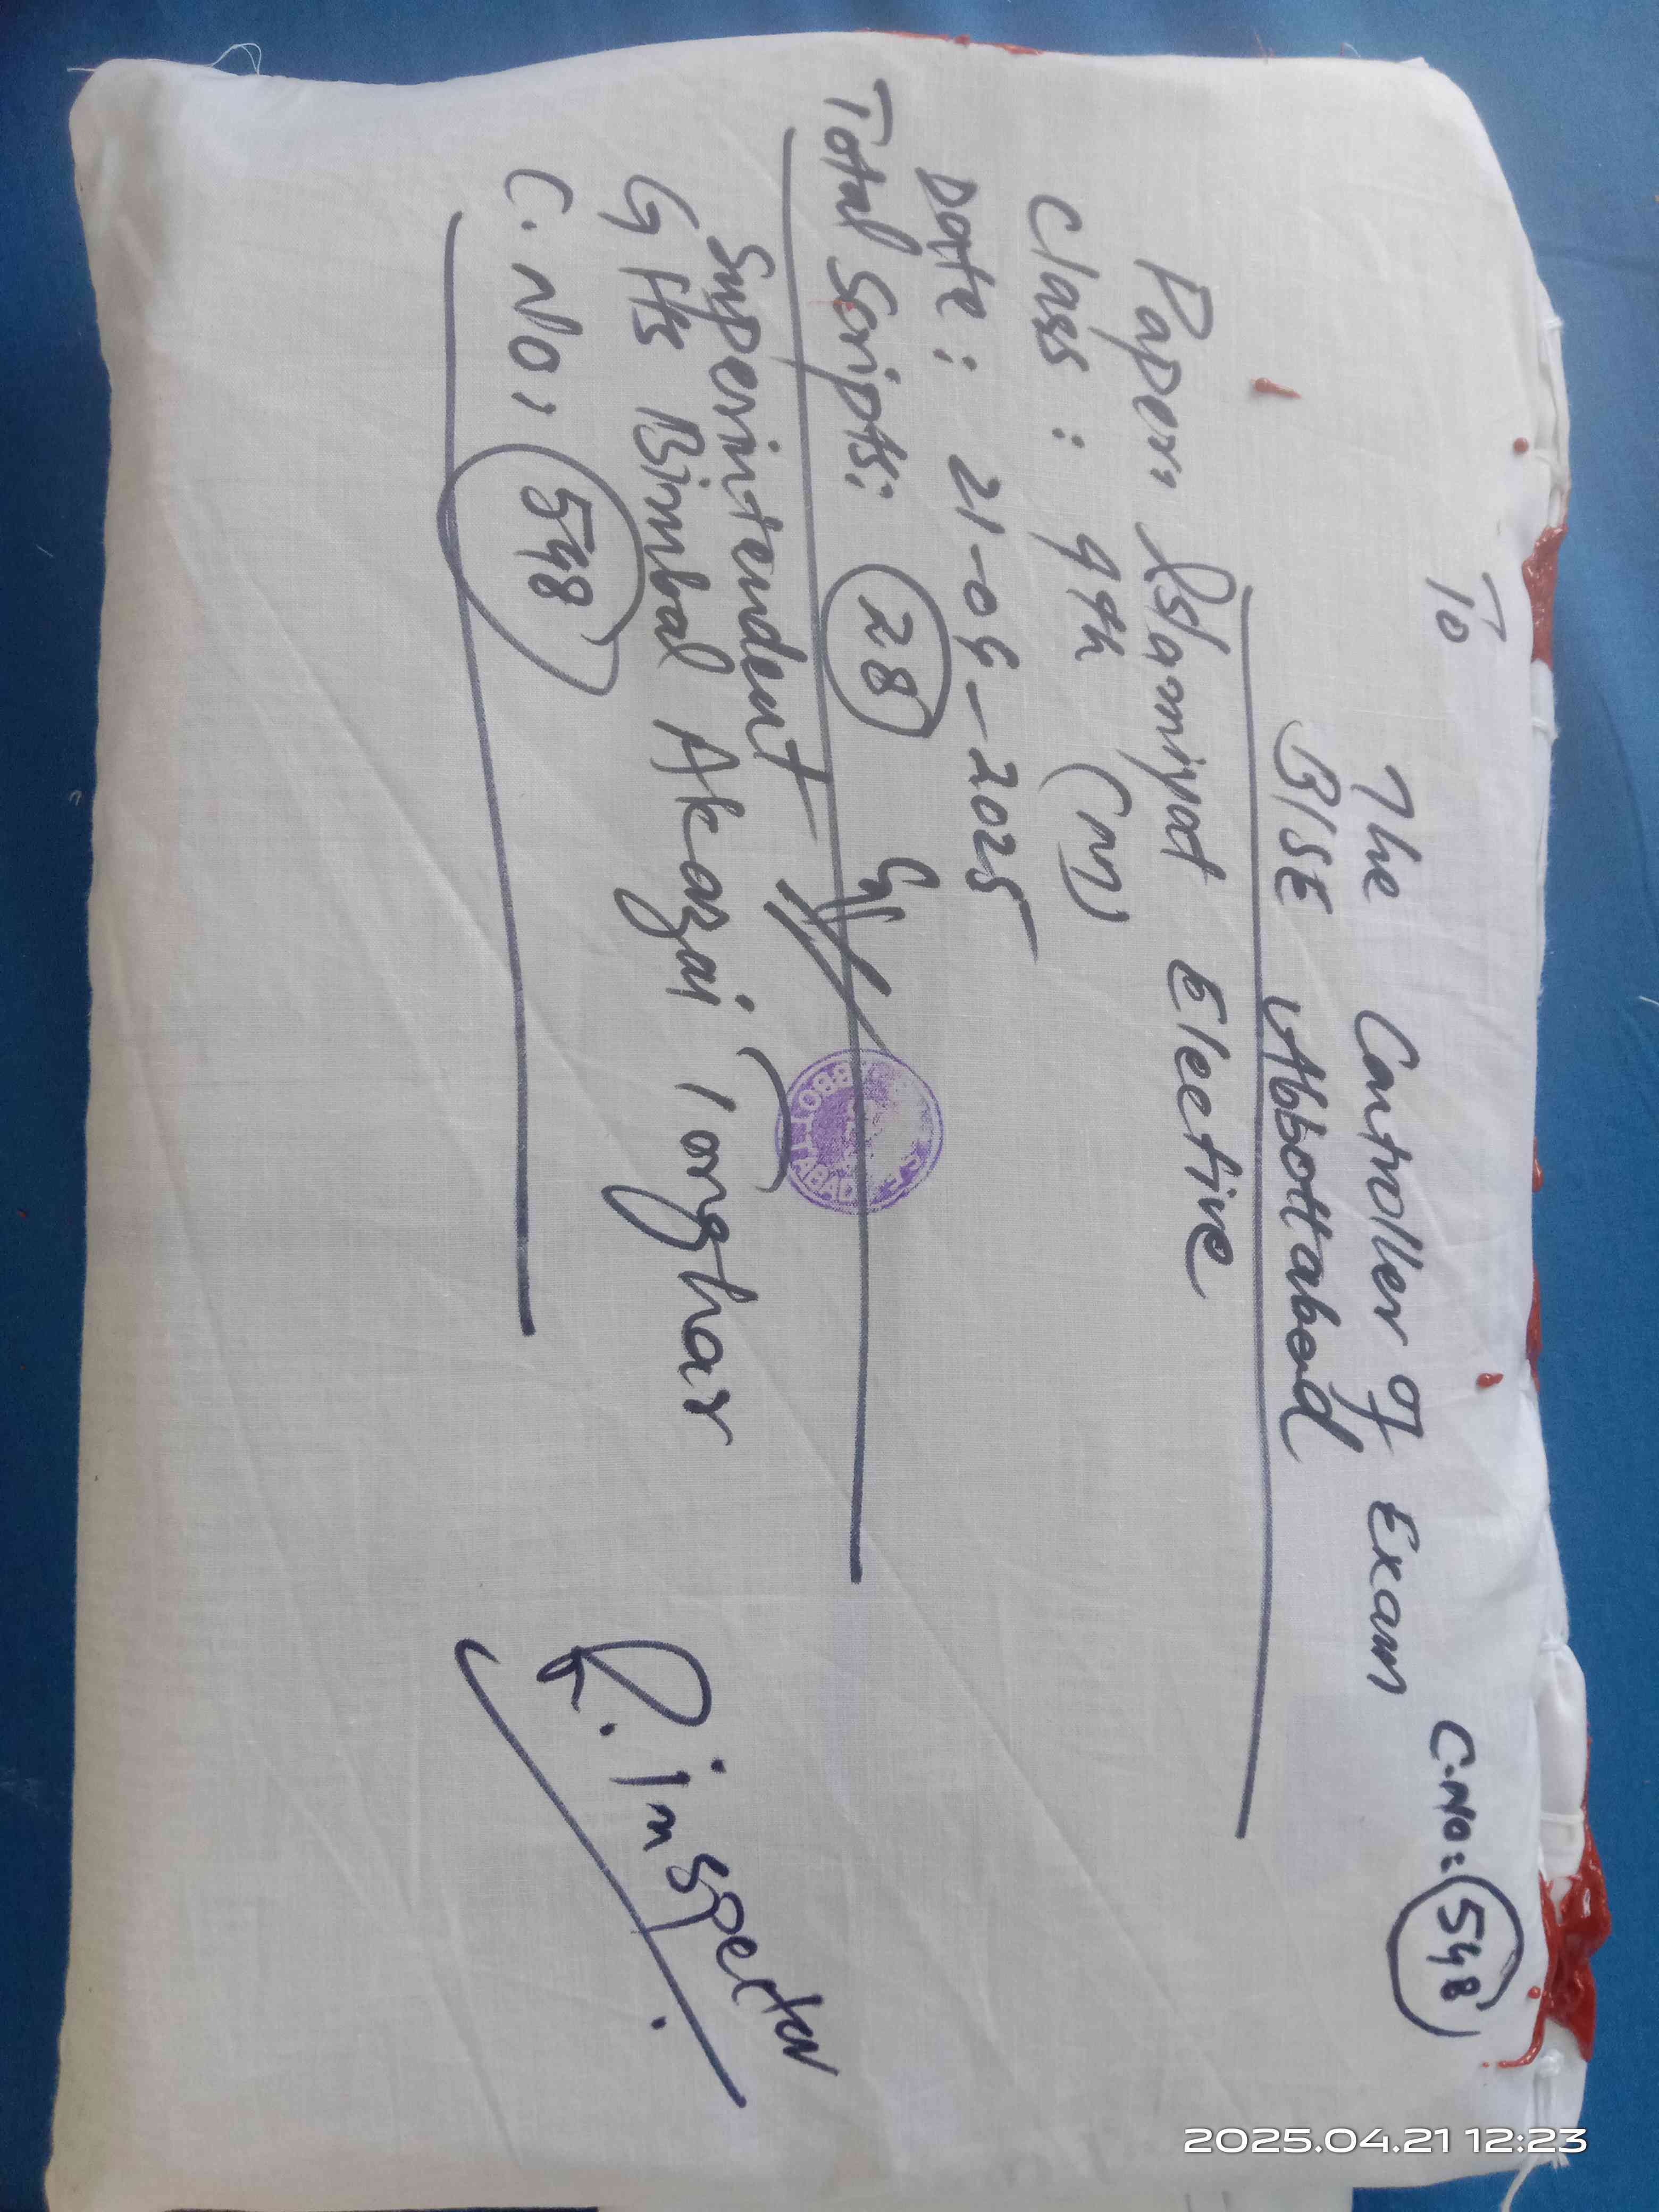 To
C.No: 548
The Controller of Exam
BISE Abbottabad
Paper: Islamiyat Elective
Class: 9th (M)
Date: 21-04-2025
Total Scripts: 28
Superintendent
GHS Bimbal Akazai Torghar
C. No: 548
R. inspector
ABBOTTABAD
2025.04.21 12:23